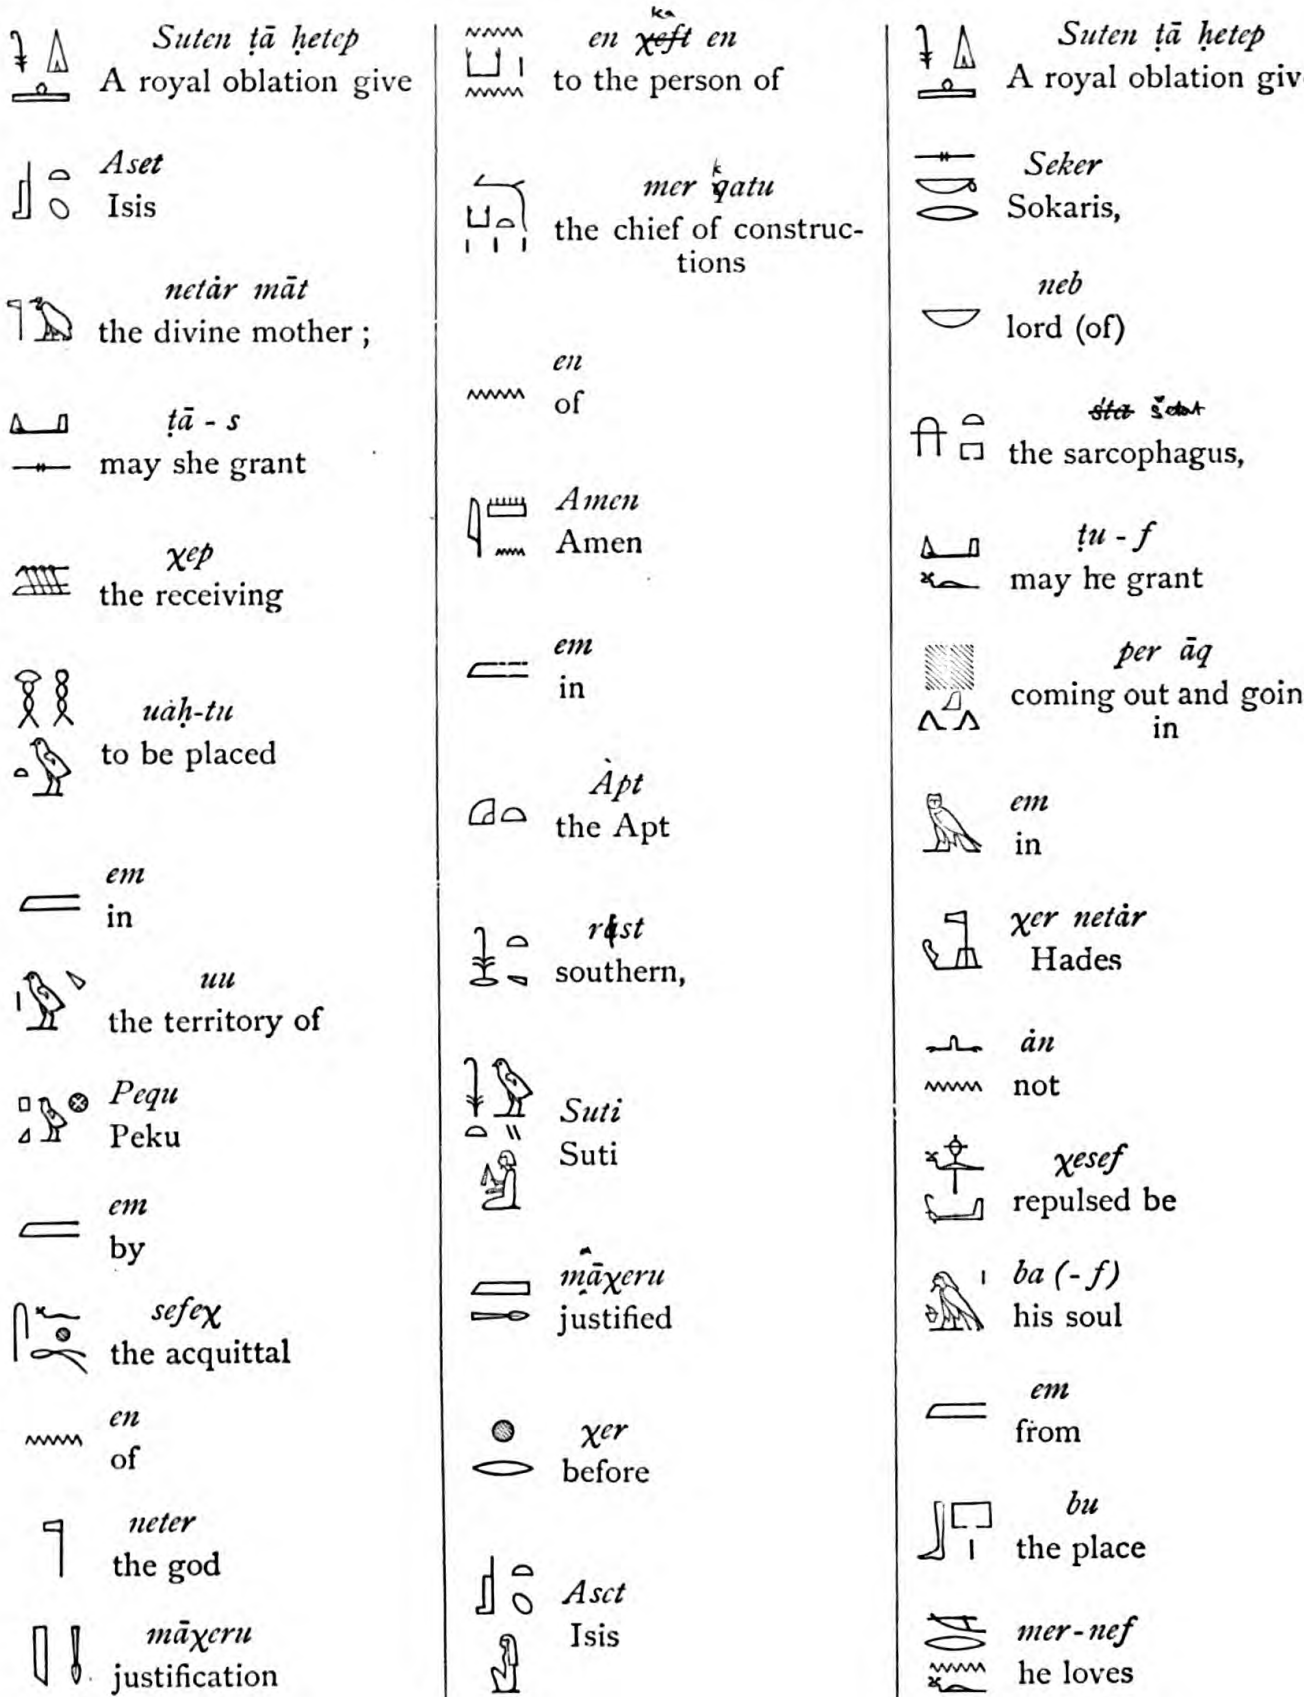 Suten ṭā ḥetep
A royal oblation give
Aset
Isis
netȧr māt
the divine mother ;
ṭā - s
may she grant
χep
the receiving
uȧḥ-tu
to be placed
em
in
uu
the territory of
Pequ
Peku
em
by
sefeχ
the acquittal
en
of
neter
the god
māχeru
justification
ka
en χeft en
to the person of
k
mer qatu
the chief of construc-
tions
en
of
Amen
Amen
em
in
Ȧpt
the Apt
southern,
Suti
Suti
māχeru
justified
χer
before
Aset
Isis
Suten ṭā ḥetep
A royal oblation giv
Seker
Sokaris,
neb
lord (of)
the sarcophagus,
ṭu - f
may he grant
per āq
coming out and goin
in
em
in
χer netȧr
Hades
ȧn
not
χesef
repulsed be
ba (- f)
his soul
em
from
bu
the place
mer-nef
he loves